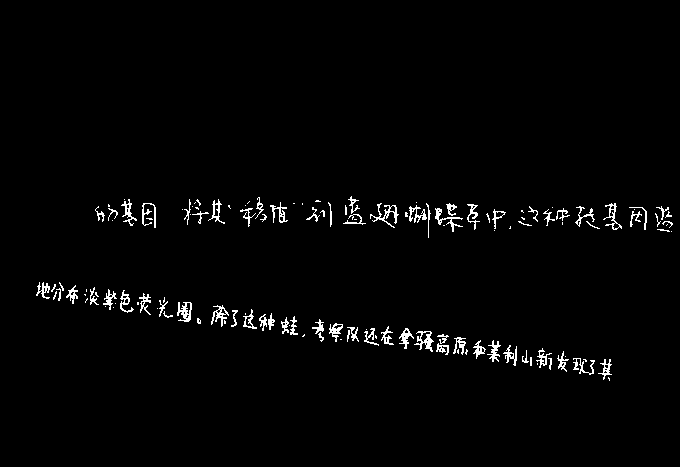 的基因 将其“移值”到蓝翅蝴蝶草中,这种转基因蓝
地分布淡紫色荧光圈。除了这种蛙,考察队还在拿骚高原和莱利山新发现了其